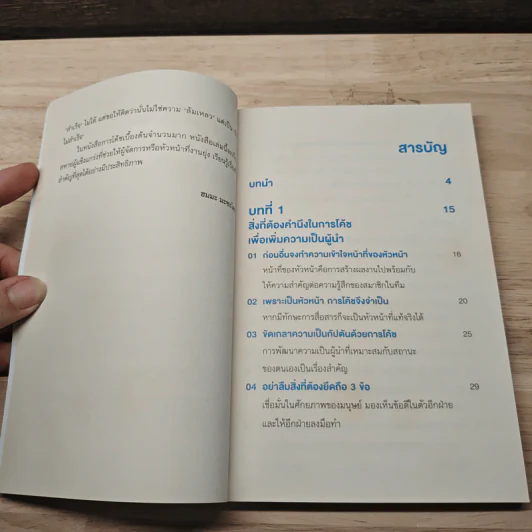 "สำเร็จ" ไม่ได้ แต่ขอให้คิดว่านั่นไม่ใช่ความ "ล้มเหลว" แต่เป็น
ไม่สำเร็จ"
ในหนังสือการโค้ชเบื้องต้นจำนวนมาก หนังสือเล่มนี้
ที่ช่วยให้ผู้จัดการหรือหัวหน้าที่งานยุ่ง เรียนรู้
สำคัญที่สุดได้อย่างมีประสิทธิภาพ
สารบัญ
บทนำ 4
บทที่ 1 15
สิ่งที่ต้องคำนึงในการโค้ช
เพื่อเพิ่มความเป็นผู้นำ
01 ก่อนอื่นจงทำความเข้าใจหน้าที่ของหัวหน้า 16
หน้าที่ของหัวหน้าคือการสร้างผลงานไปพร้อมกับ
ให้ความสำคัญต่อความรู้สึกของสมาชิกในทีม
02 เพราะเป็นหัวหน้า การโค้ชจึงจำเป็น 20
หากมีทักษะการสื่อสารก็จะเป็นหัวหน้าที่แท้จริงได้
03 ขัดเกลาความเป็นกัปตันด้วยการโค้ช 25
การพัฒนาความเป็นผู้นำที่เหมาะสมกับสถานะ
ของตนเองเป็นเรื่องสำคัญ
04 อย่าลืมสิ่งที่ต้องยึดถือ 3 ข้อ 29
เชื่อมั่นในศักยภาพของมนุษย์ มองเห็นข้อดีในตัวอีกฝ่าย
และให้อีกฝ่ายลงมือทำ